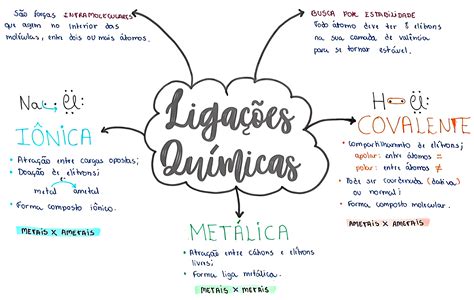 São forças INTRAMOLECULARES
que agem no interior das
moléculas, entre dois ou mais átomos.
BUSCA POR ESTABILIDADE
Todo átomo deve ter 8 elétrons
na sua camada de valência
para se tornar estável.
Ligações
Químicas
Na Cl
IÔNICA
• Atração entre cargas opostas;
• Doação de elétrons;
metal ametal
• Forma composto iônico.
METAIS X AMETAIS
H Cl
COVALENTE
• Compartilhamento de elétrons;
apolar: entre átomos =
polar: entre átomos ≠
• Pode ser coordenada (dativa)
ou normal;
• Forma composto molecular.
AMETAIS X AMETAIS
METÁLICA
• Atração entre cátions e elétrons
livres;
• Forma liga metálica.
METAIS X METAIS